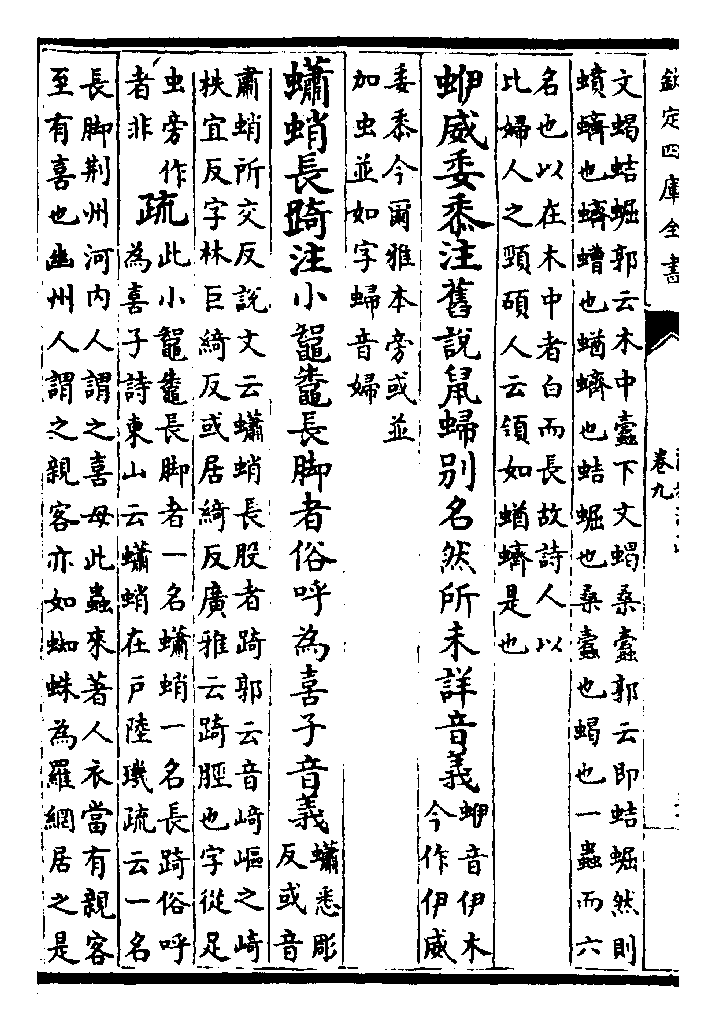 欽定四庫全書
卷九
文蝎蛣𧌑郭云木中蠹下文蝎桑蠹郭云即蛣𧌑然則
蟦蠐也蠐螬也蝤蠐也蛣𧌑也桑蠹也蝎也一蟲而六
名也以在木中者白而長故詩人以
比婦人之頸碩人云領如蝤蠐是也
蛜威委黍注舊說鼠蝂別名然所未詳音義
蛜音伊木
今作伊威
委黍今爾雅本旁或並
加虫並如字蝂音婦
蠨蛸長踦注小鼅鼄長脚者俗呼為喜子音義
蠨悉彫
反或音
肅蛸所交反說文云蠨蛸長股者踦郭云音崎嶇之崎
袟宜反字林巨綺反或居綺反廣雅云踦脛也字從足
虫旁作
者非
疏
此小鼅鼄長脚者一名蠨蛸一名長踦俗呼
為喜子詩東山云蠨蛸在戸陸璣疏云一名
長脚荆州河内人謂之喜母此蟲來著人衣當有親客
至有喜也幽州人謂之親客亦如蜘蛛為羅網居之是